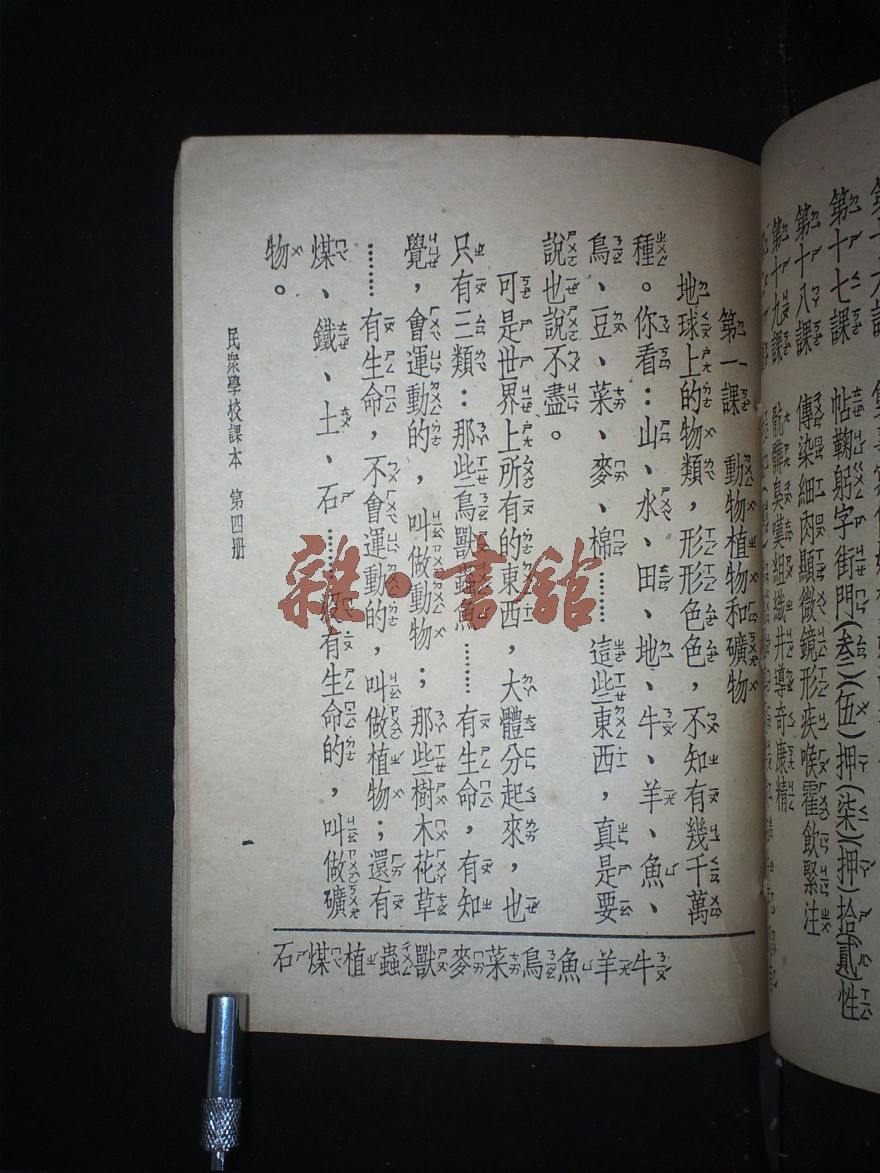 第十七課
第十八課
第十九課
帖鞠躬字街門(叁)(伍)押(柒)(押)拾(貳)性
傳染細肉顯微鏡形疾喉霍飲緊注
骯髒臭糞組織井導奇康精
第一課 動物植物和礦物
地球上的物類，形形色色，不知有幾千萬
種。你看：山、水、田、地、牛、羊、魚、
鳥、豆、菜、麥、棉………這些東西，真是要
說也說不盡。
可是世界上所有的東西，大體分起來，也
只有三類：那些鳥獸蟲魚………有生命，有知
覺，會運動的，叫做動物；那些樹木花草
………有生命，不會運動的，叫做植物；還有
煤、鐵、土、石………沒有生命的，叫做礦
物。
牛羊魚鳥菜麥獸蟲植煤石
民眾學校課本 第四冊
一
雜·書館